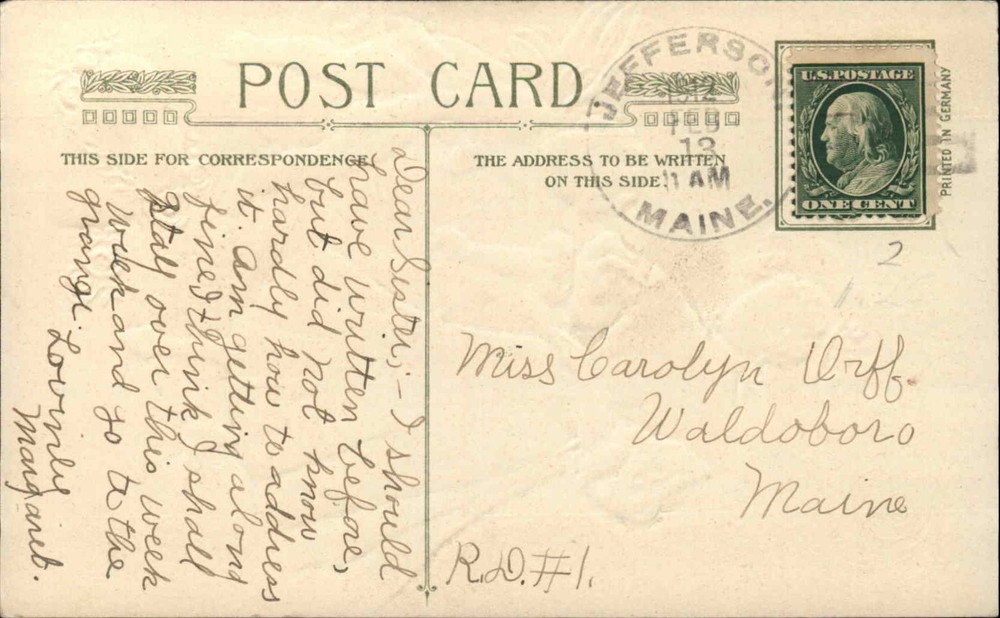 POST CARD
THIS SIDE FOR CORRESPONDENCE
THE ADDRESS TO BE WRITTEN
ON THIS SIDE
JEFFERSON
1912
FEB
13
11 AM
MAINE.
U.S. POSTAGE
ONE CENT
PRINTED IN GERMANY
2
Dear Sister;- I should
have written before,
but did not know
hardly how to address
it. Am getting along
fine I think I shall
stay over this week
Week and go to the
grange. Lovingly
Margaret.
Miss Carolyn Orff.
Waldoboro
Maine
R.D.#1.